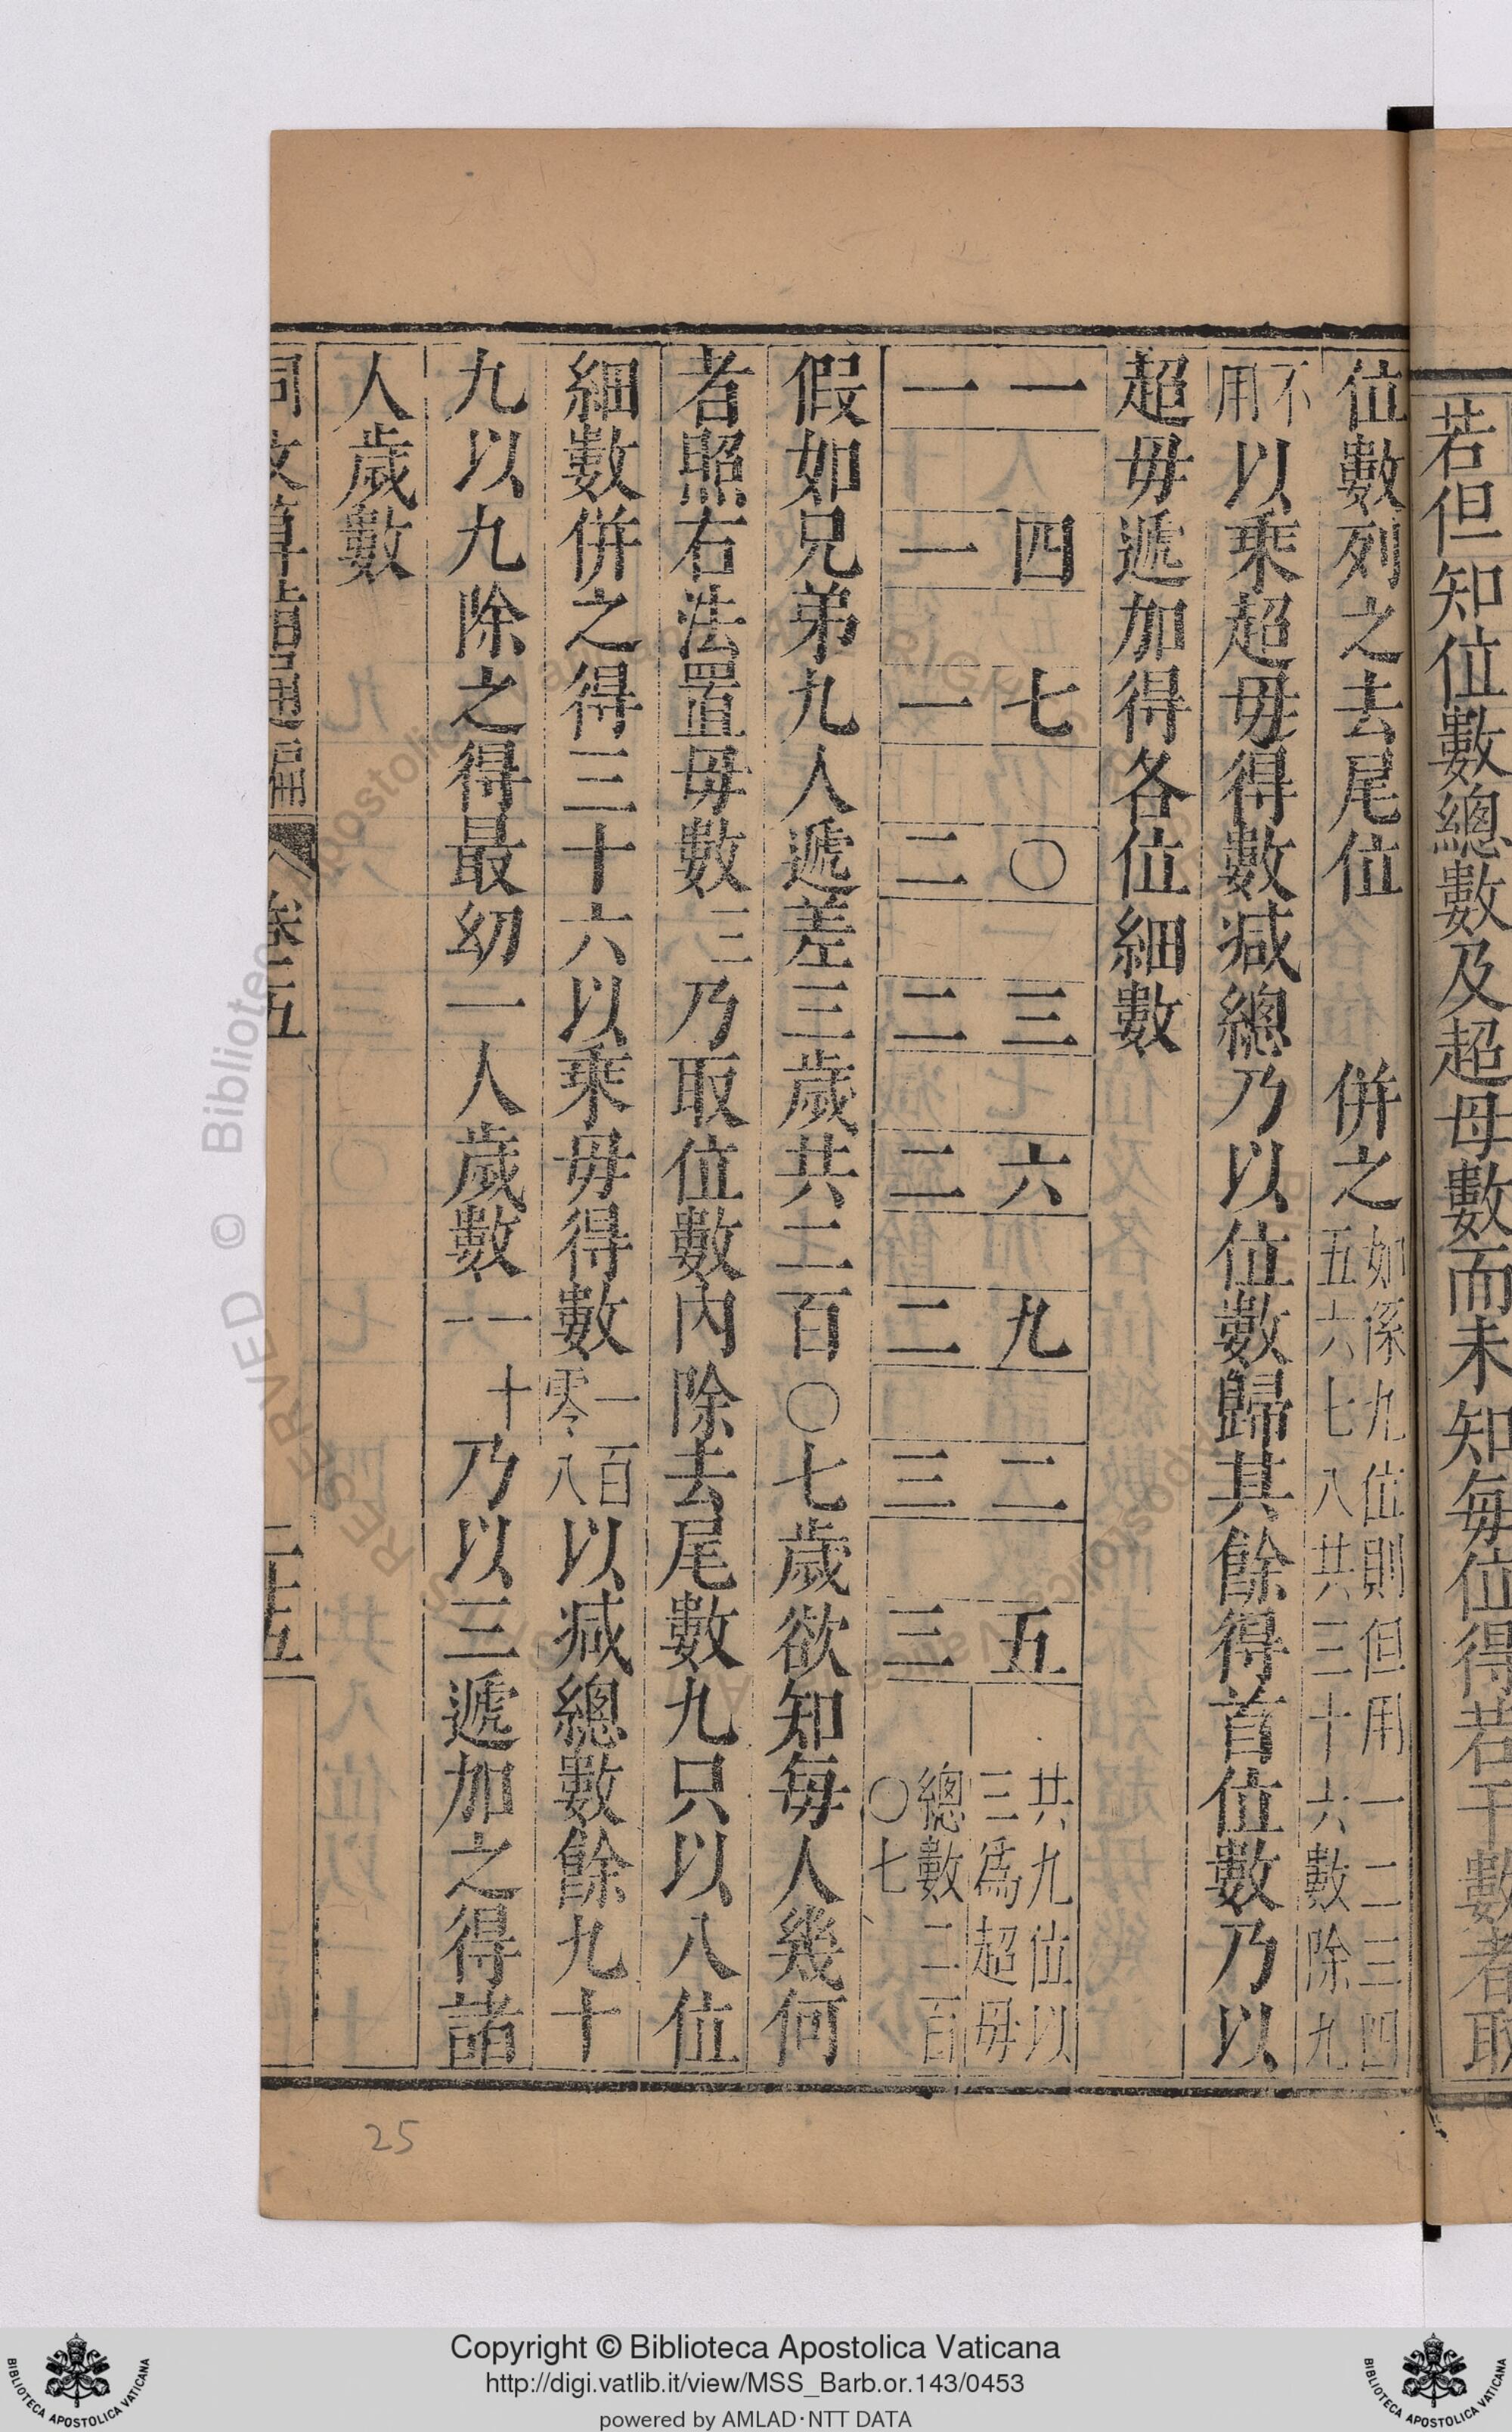 若但知位數總數及超母數而未知每位得若干數者取
位數列之去尾位 併之如係九位則但用一二三四五六七八共三十六數除九
不用以乘超毋得數減總乃以位數歸其餘得首位數乃以
超毋遞加得各位細數
一 四 七 〇 三 六 九 二 五 共九位以三爲超毋
一 一 一 二 二 二 二 三 三 總數二百〇七
假如兄弟九人遞差三歲共二百〇七歲欲知每人幾何
者照右法置毋數三乃取位數內除去尾數九只以八位
細數併之得三十六以乘毋得數一百零八以減總數餘九十
九以九除之得最幼一人歲數一十一乃以三遞加之得諸
人歲數
同文算指通編 卷五 二十五
25
Copyright © Biblioteca Apostolica Vaticana
http://digi.vatlib.it/view/MSS_Barb.or.143/0453
powered by AMLAD·NTT DATA
BIBLIOTECA APOSTOLICA VATICANA
BIBLIOTECA APOSTOLICA VATICANA